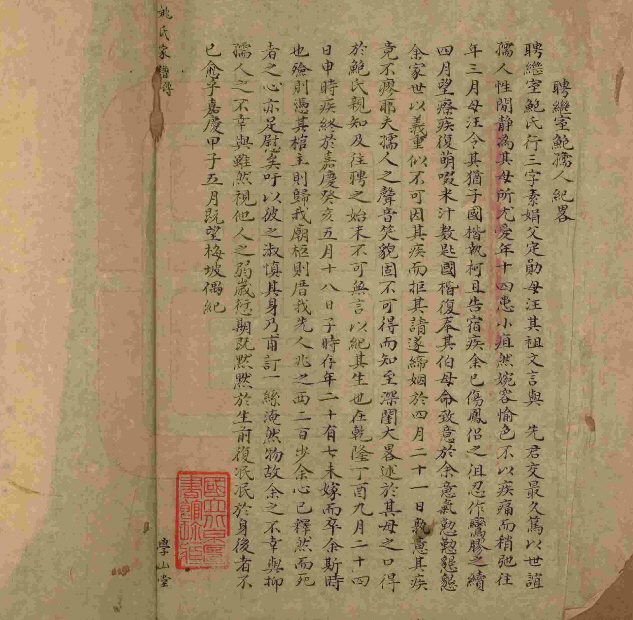 聘繼室鮑孺人紀畧
聘繼室鮑氏行三字素娟父定勛母汪其祖文言與 先君交最久篤以世誼
孺人性閒静為其母所尤愛年十四患小疽然婉容愉色不以疾痛而稍弛往
年三月母汪令其猶子國楷執柯且告宿疾余已傷鳳侣之徂忍作鸞膠之續
四月望療疾復萌啜米汁數匙國楷復奉其伯母命致意於余意氣懃懃懇懇
余家世以義重似不可因其疾而拒其請遂締姻於四月二十一日孰意其疾
竟不廖耶夫孺人之聲音笑貌固不可得而知至深閨大畧述於其母之口得
於鮑氏親知及往聘之始末不可無言以紀其生也在乾隆丁酉九月二十四
日申時疾終於嘉慶癸亥五月十八日子時存年二十有七未嫁而卒余斯時
也殮則憑其棺主則歸我廟柩則厝我先人兆之西二百步余心已釋然而死
者之心亦足慰矣吁以彼之淑慎其身乃甫訂一絲淹然物故余之不幸與抑
孺人之不幸與雖然視他人之弱歲愆期既默默於生前復泯泯於身後者不
已愈乎嘉慶甲子五月既望梅坡偶紀
姚氏家譜傳
學山堂